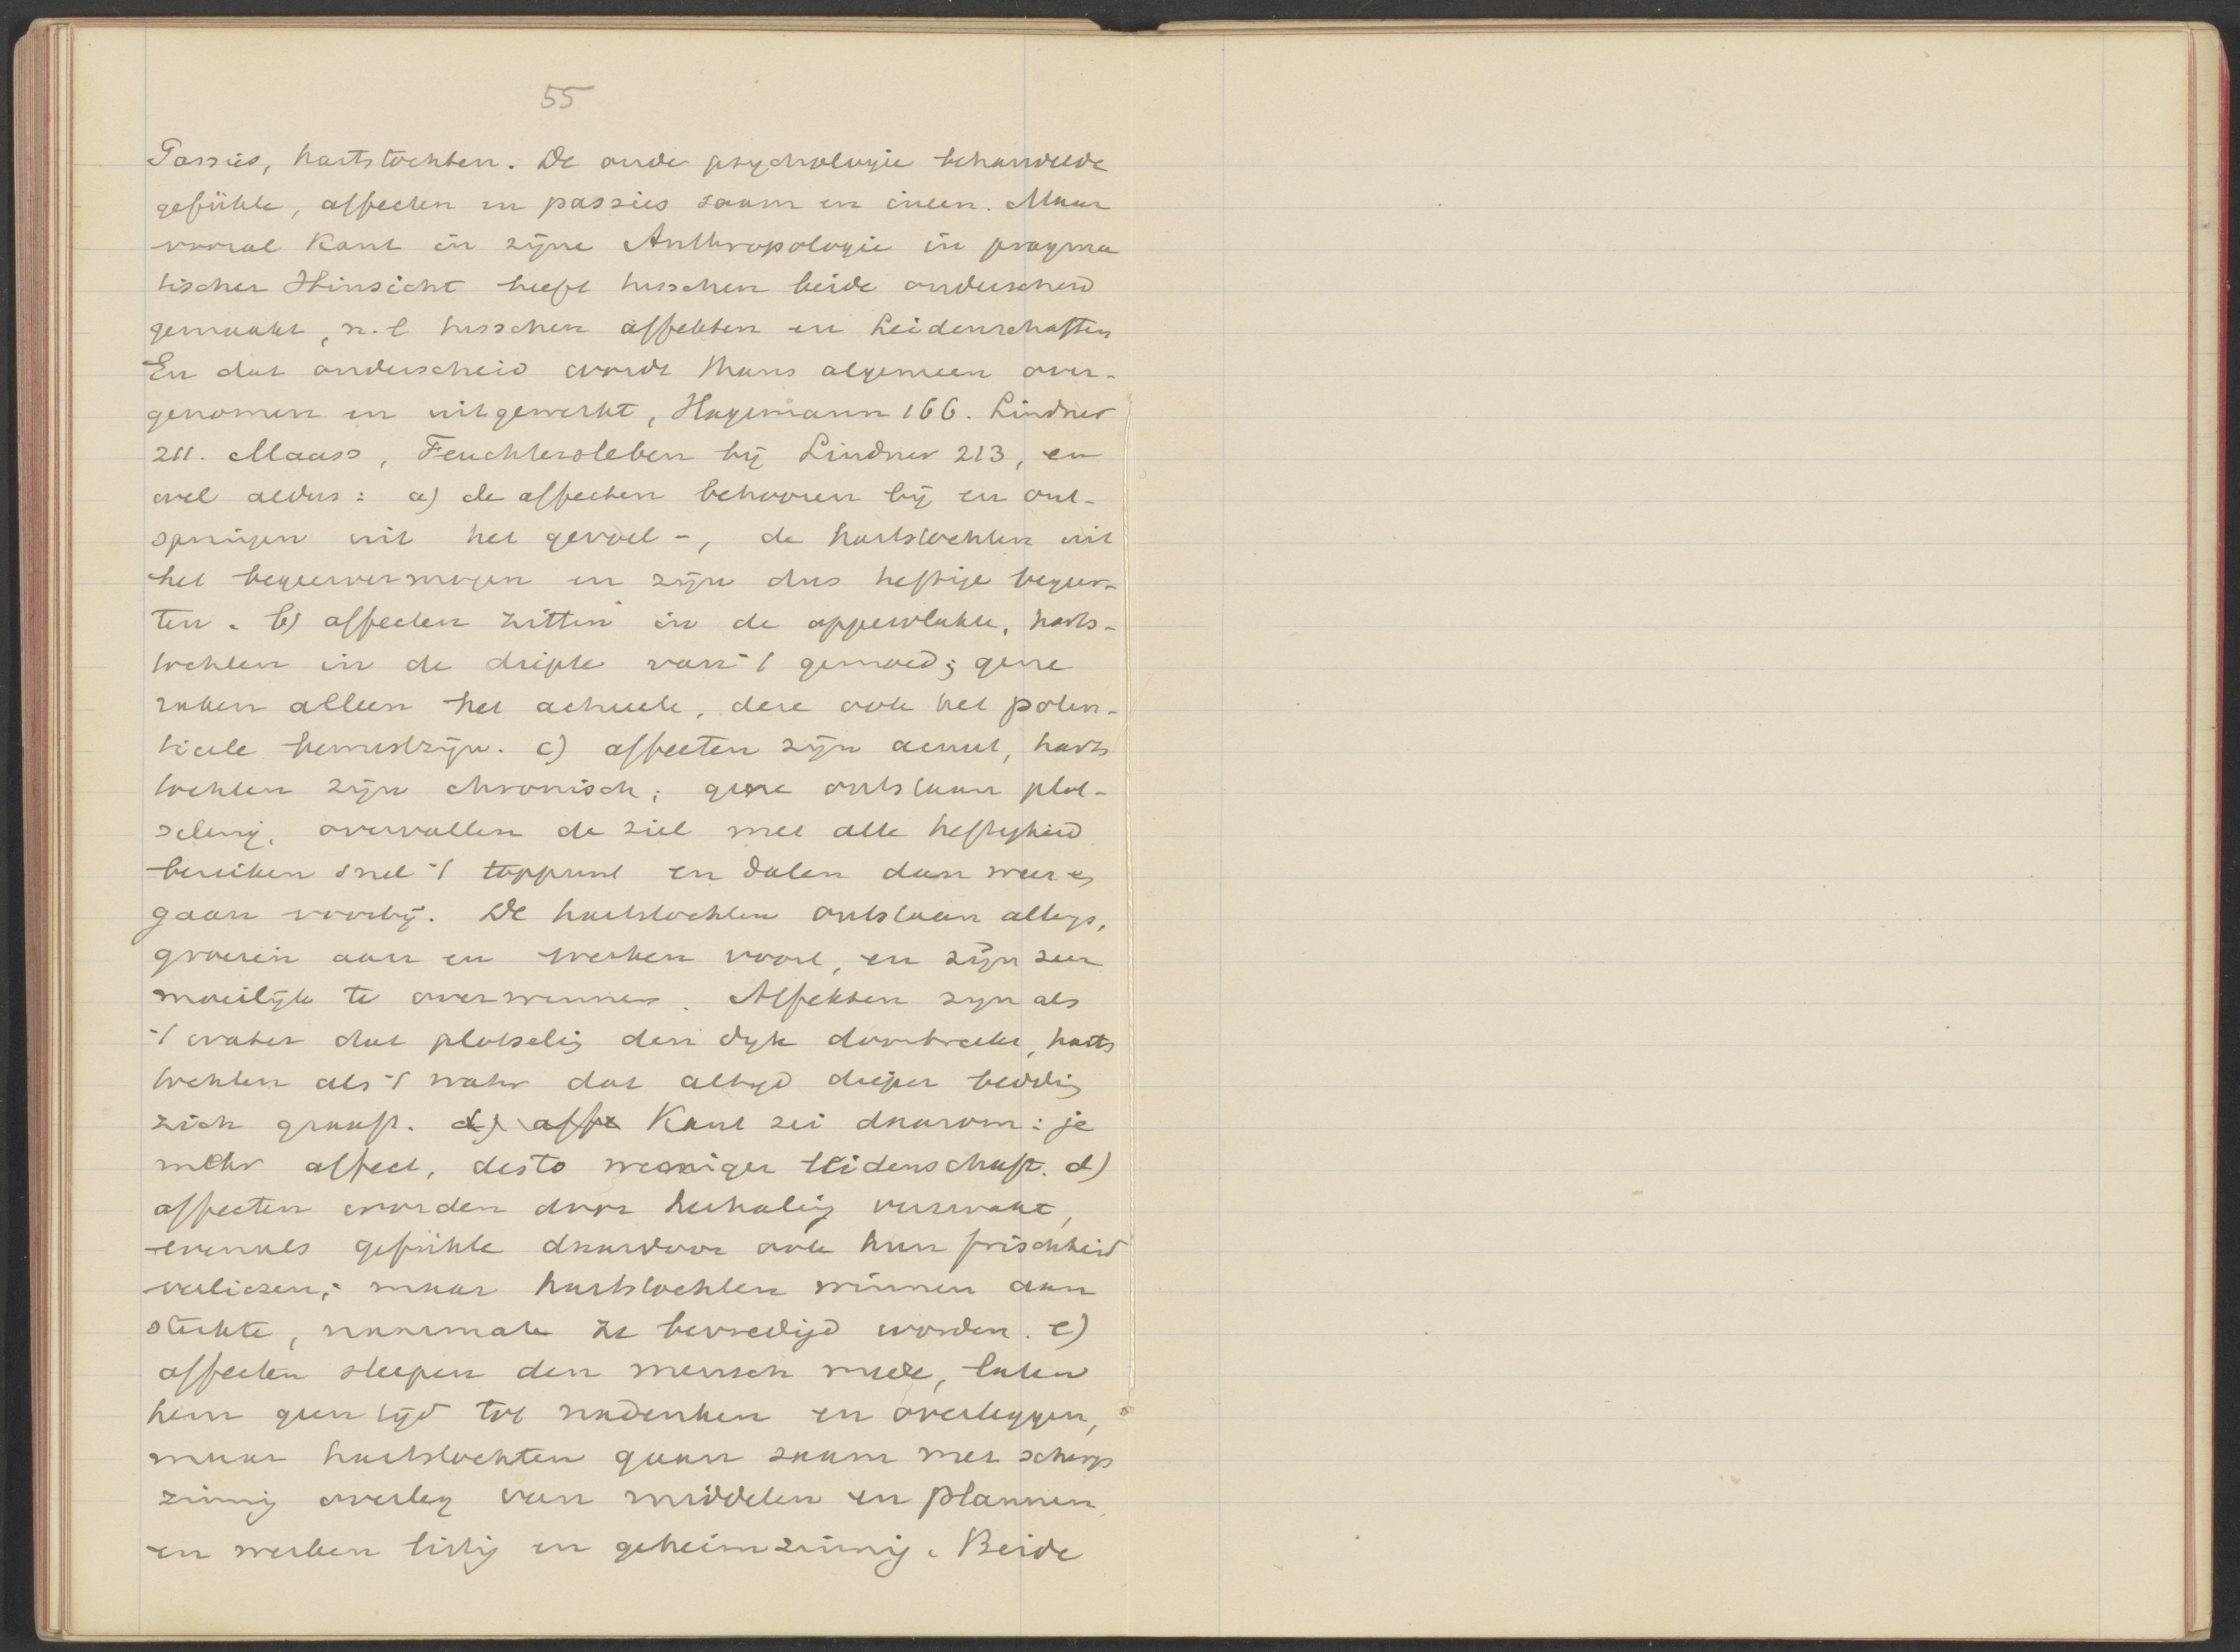 55
Passies, hartstochten. De oude psychologie behandelde
gefühle, affecten en passies saam en ineen. Maar
vooral Kant in zijne Anthropologie in pragma
tischer Hinsicht heeft tusschen beide onderscheid
gemaakt, n.l tusschen affekten en Leidenschaften
En dat onderscheid wordt thans algemeen over-
genomen en uitgewerkt, Hagemann 166. Lindner
211. Maass, Feuchtersleben bij Lindner 213, en
wel aldus: a) de affecten behooren bij en ont-
springen uit het gevoel -, de hartstochten uit
het begeervermogen en zijn dus heftige begeer-
ten. b) affecten zitten in de oppervlakte, harts-
tochten in de diepte van 't gemoed; gene
raken alleen het actueele, deze ook het poten-
tieele bewustzijn. c) affecten zijn acuut, harts
tochten zijn chronisch; gene ontstaan plot-
seling, overvallen de ziel met alle heftigheid
bereiken snel 't toppunt en dalen dan weer en
gaan voorbij. De hartstochten ontstaan allengs,
groeien aan en werken voort, en zijn zeer
moeilijk te overwinnen. Affekten zijn als
't water dat plotselig den dijk doorbreekt, harts
tochten als 't water dat altijd dieper bedding
zich graaft. d) affe Kant zei daarom: je
mehr affect, desto weniger leidenschaft. d)
affecten worden door herhaling verzwakt,
evenals gefühle daardoor ook hun frischheid
verliezen; maar hartstochten winnen aan
sterkte, naarmate ze bevredigd worden. e)
affecten sleepen den mensch mede, laten
hem geen tijd tot nadenken en overleggen,
maar hartstochten gaan saam met scherp
zinnig overleg van middelen en plannen
en werken listig en geheimzinnig. Beide